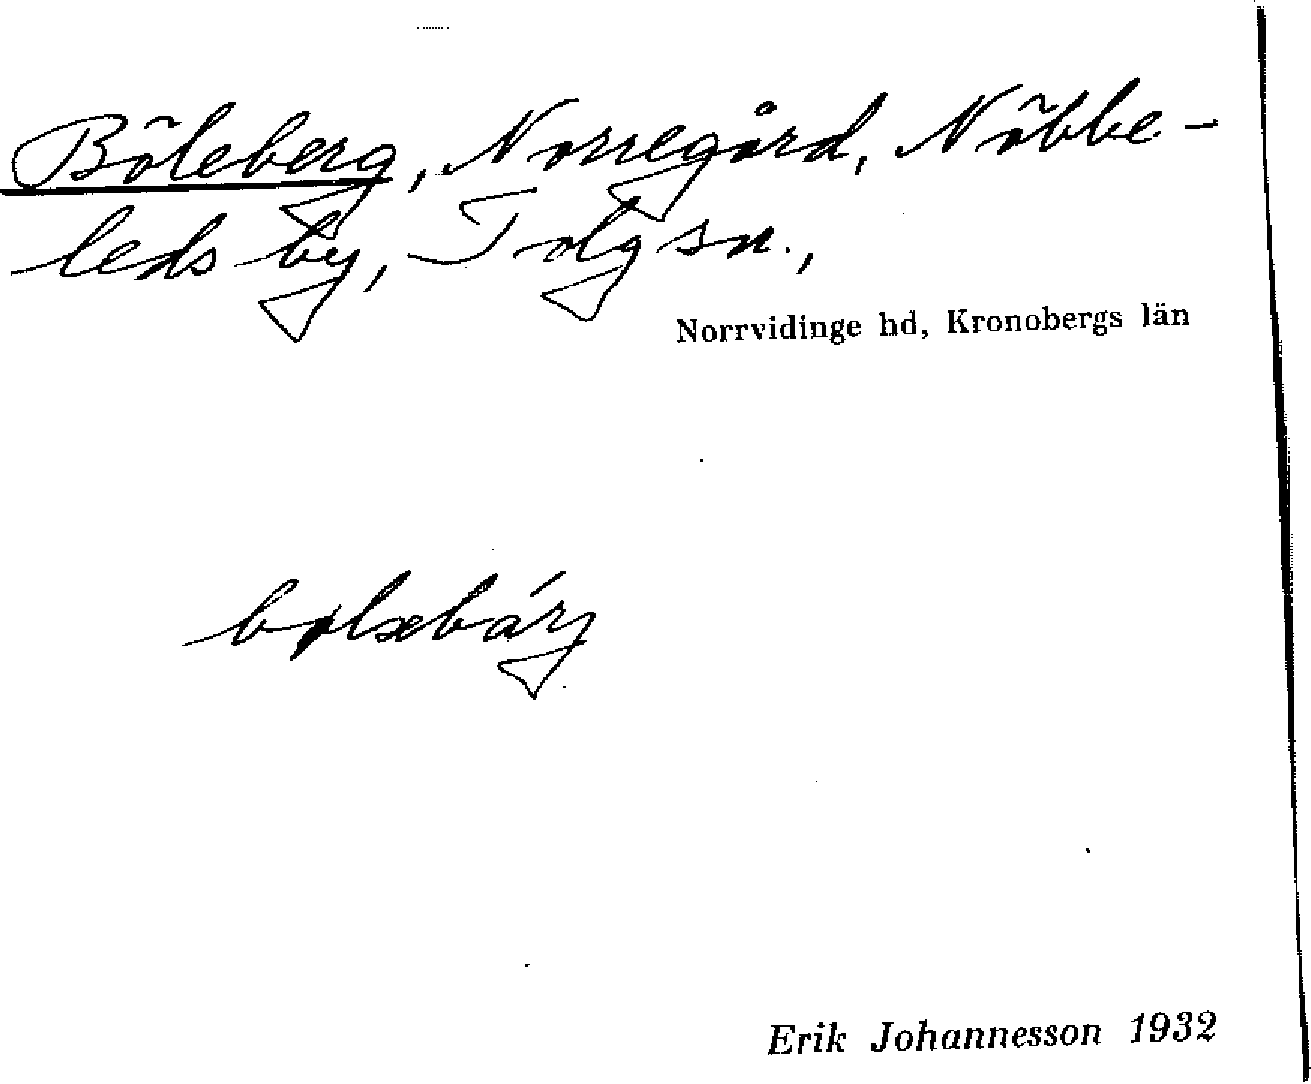 Böleberg, Norregård, Nöbbe-
leds by, Tolg sn.,
Norrvidinge hd, Kronobergs län
Erik Johannesson 1932